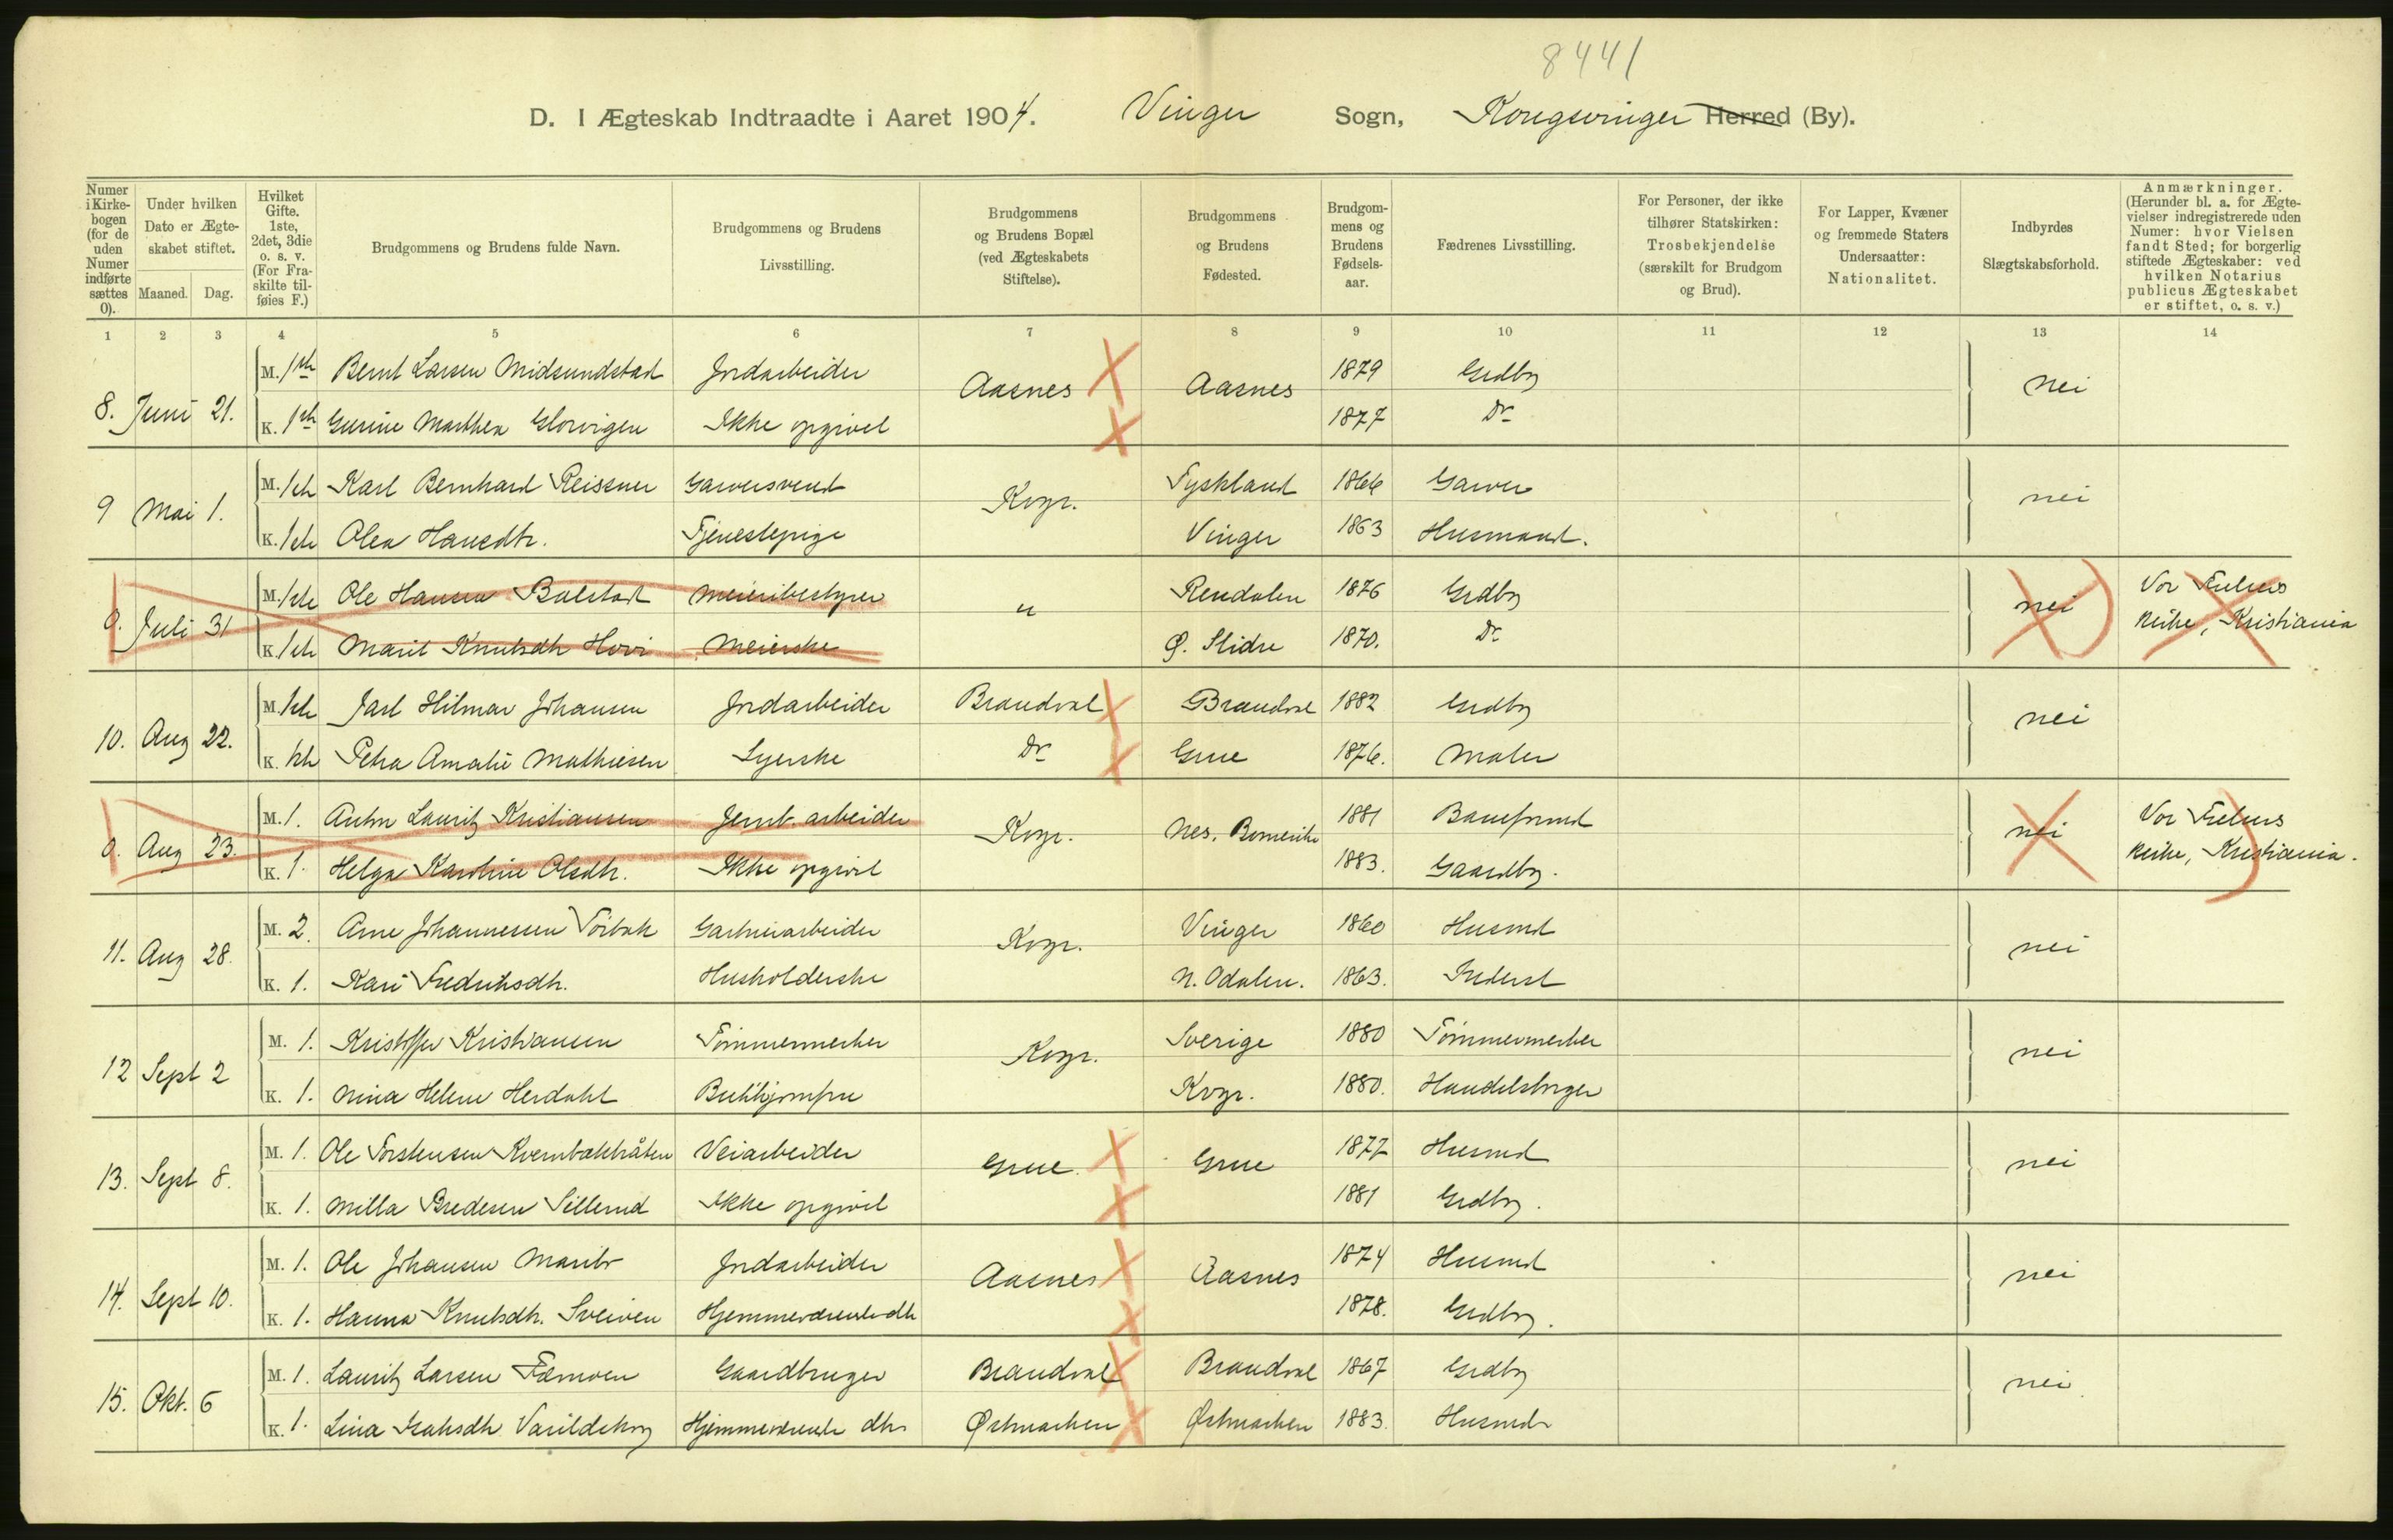 8441
D. I Ægteskab Indtraadte i Aaret 1904. Vinger Sogn, Kongsvinger Herred (By).
Numer i Kirkebogen (for de uden Numer indførte sættes 0).
Under hvilken Dato er Ægteskabet stiftet.
Maaned. Dag.
Hvilket Gifte. 1ste, 2det, 3die o. s. v. (For Fraskilte tilføies F.)
Brudgommens og Brudens fulde Navn.
Brudgommens og Brudens Livsstilling.
Brudgommens og Brudens Bopæl (ved Ægteskabets Stiftelse).
Brudgommens og Brudens Fødested.
Brudgommens og Brudens Fødselsaar.
Fædrenes Livsstilling.
For Personer, der ikke tilhører Statskirken: Trosbekjendelse (særskilt for Brudgom og Brud).
For Lapper, Kvæner og fremmede Staters Undersaatter: Nationalitet.
Indbyrdes Slægtskabsforhold.
Anmærkninger. (Herunder bl. a. for Ægtevielser indregistrerede uden Numer: hvor Vielsen fandt Sted; for borgerlig stiftede Ægteskaber: ved hvilken Notarius publicus Ægteskabet er stiftet, o. s. v.)
1 2 3 4 5 6 7 8 9 10 11 12 13 14
M. 1ste Bernt Larsen Midsundstad Jordarbeider 1879 Grdbr
8. Juni 21. Aasnes Aasnes nei
K. 1ste Gurine Marthea Glorvigen Ikke opgivet 1877 Do
M. 1ste Karl Bernhard Reissner Garversvend Tyskland 1866 Garver
9 Mai 1. Kvgr. nei
K. 1ste Olea Hansdtr. Tjenestepige Vinger 1863 Husmand.
M. 1ste Ole Hansen Bolstad Meieribestyrer Rendalen 1876 Grdbr Vor Frelsers
0. Juli 31 " nei Kirke, Kristiania
K. 1ste Marit Knutsdtr Hovi Meierske Ø. Slidre 1870. Do
M. 1ste Jarl Hilmar Johansen Jordarbeider Brandval Brandval 1882 Grdbr
10. Aug 22. nei
K. 1ste Petra Amalie Mathiesen Syerske Do Grue 1876. Maler
M. 1. Anton Lauritz Kristiansen Jernb. arbeider 1881 Baneformd Vor Frelsers
0. Aug 23. Kvgr. Nes, Romerike nei Kirke, Kristiania.
K. 1. Helga Karoline Olsdtr. Ikke opgivet 1883. Gaardbr.
M. 2. Arne Johannessen Vinger 1860 Husmd
11. Aug 28. Kvgr. nei
K. 1. Kari Fredriksdtr. Husholderske N. Odalen. 1863. Inderst
M. 1. Kristoffer Kristiansen Tømmermerker Sverige 1880 Tømmermerker
12 Sept 2 Kvgr. nei
K. 1. Nina Helene Herdahl Butikjomfru Kvgr. 1880. Handelsborger
M. 1. Ole Torstensen Kvernbakkbråten Veiarbeider 1877 Husmd
13. Sept 8. Grue. Grue nei
K. 1. Milla Bredesen Sillerud Ikke opgivet 1881 Grdbr.
M. 1. Ole Johansen Jordarbeider 1874 Husmd
14. Sept 10. Aasnes Aasnes nei
K. 1. Hanna Knutsdtr. Sveiven Hjemmeværende dtr 1878. Grdbr.
M. 1. Lauritz Larsen Gaardbruger Brandval Brandval 1867 Grdbr
15. Okt. 6 nei
K. 1. Lina Isaksdtr Varildskog Hjemmeværende dtr Østmarken Østmarken 1883. Husmd